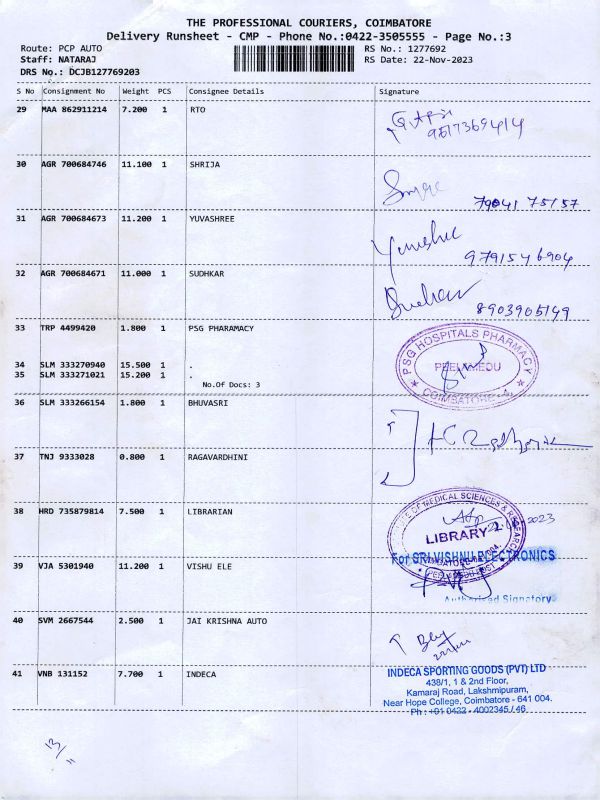 THE PROFESSIONAL COURIERS, COIMBATORE
Delivery Runsheet - CMP - Phone No.:0422-3505555 - Page No.:3
Route: PCP AUTO RS No.: 1277692
Staff: NATARAJ RS Date: 22-Nov-2023
DRS No.: DCJB127769203
S No Consignment No Weight PCS Consignee Details Signature
29 MAA 862911214 7.200 1 RTO
9517369414
30 AGR 700684746 11.100 1 SHRIJA
79041 75157
31 AGR 700684673 11.200 1 YUVASHREE
9791546904
32 AGR 700684671 11.000 1 SUDHKAR
8903905149
33 TRP 4499420 1.800 1 PSG PHARAMACY
PSG HOSPITALS PHARMACY
PEELAMEDU
COIMBATORE - 4
34 SLM 333270940 15.500 1 .
35 SLM 333271021 15.200 1 .
No.Of Docs: 3
36 SLM 333266154 1.800 1 BHUVASRI
37 TNJ 9333028 0.800 1 RAGAVARDHINI
38 HRD 735879814 7.500 1 LIBRARIAN
OF MEDICAL SCIENCES & RESEARCH
LIBRARY
39 VJA 5301940 11.200 1 VISHU ELE
For SRI VISHNU ELECTRONICS
Authorised Signatory
40 SVM 2667544 2.500 1 JAI KRISHNA AUTO
41 VNB 131152 7.700 1 INDECA
INDECA SPORTING GOODS (PVT) LTD
438/1, 1 & 2nd Floor,
Kamaraj Road, Lakshmipuram,
Near Hope College, Coimbatore - 641 004.
Ph : +91 0422 - 4002345 / 46